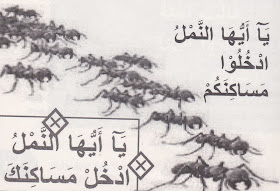 يَآ أَيُّهَا النَّمْلُ
ادْخُلُوْا
مَسَاكِنَكُمْ
يَآ أَيُّهَا النَّمْلُ
ادْخُلْ مَسَاكِنَكَ